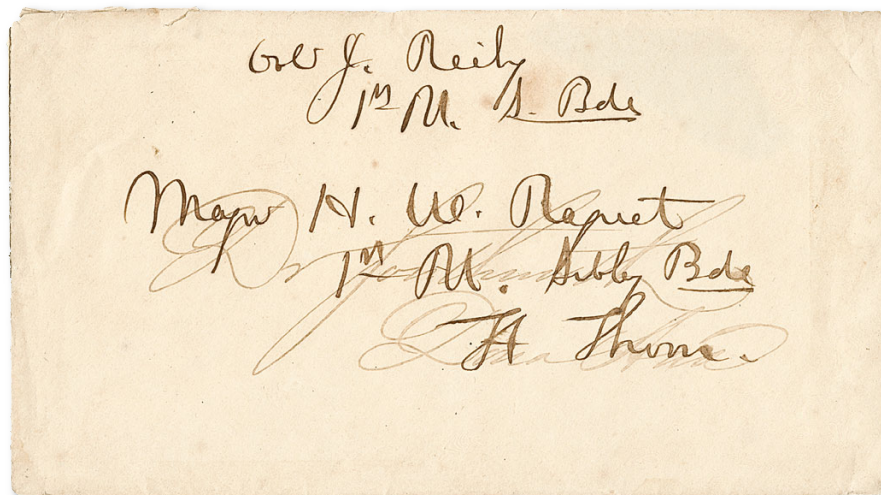 Col J. Reily
1st R. S. Bde
Major H. W. Raguet
1st R. Sibley Bde
Ft Thorn.